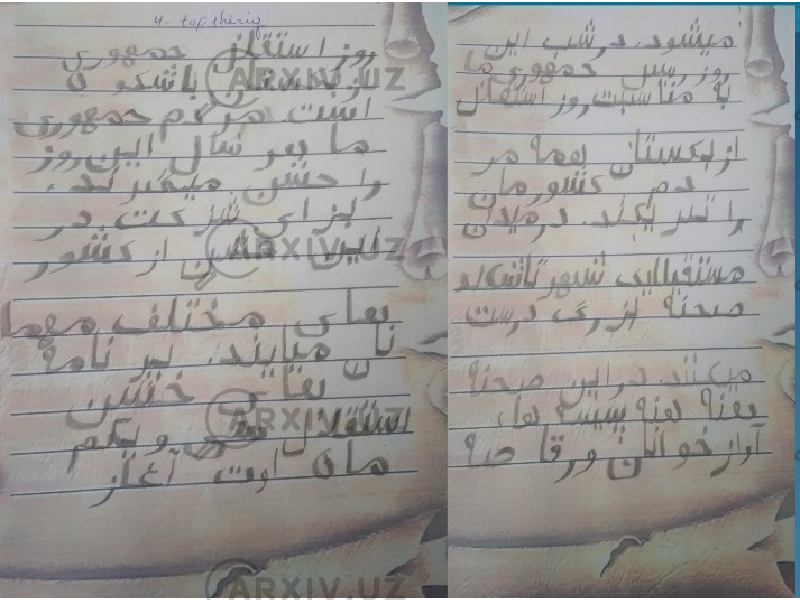 4- topshiriq
روز استقلال جمهوری
ازبکستان باشکوه
است مردم جمهوری
ما هر سال این روز
را جشن میگیرند.
برای شرکت در
این جشن از کشور
های مختلف مهما
نان میایند. برنامه
های جشن
استقلال سی و یکم
ماه اوت آغاز
میشود. در شب این
روز رییس جمهوری ما
به مناسبت روز استقلال
ازبکستان بهمه مر
دم کشورمان
را تبریکند. در میدان
مستقیللیک شهر تاشکند
صحنه بزرگ درست
میکنند. در این صحنه
هنرپیشه ها،
آواز خوانان و رقاصه
ARXIV.UZ
ARXIV.UZ
ARXIV.UZ
ARXIV.UZ